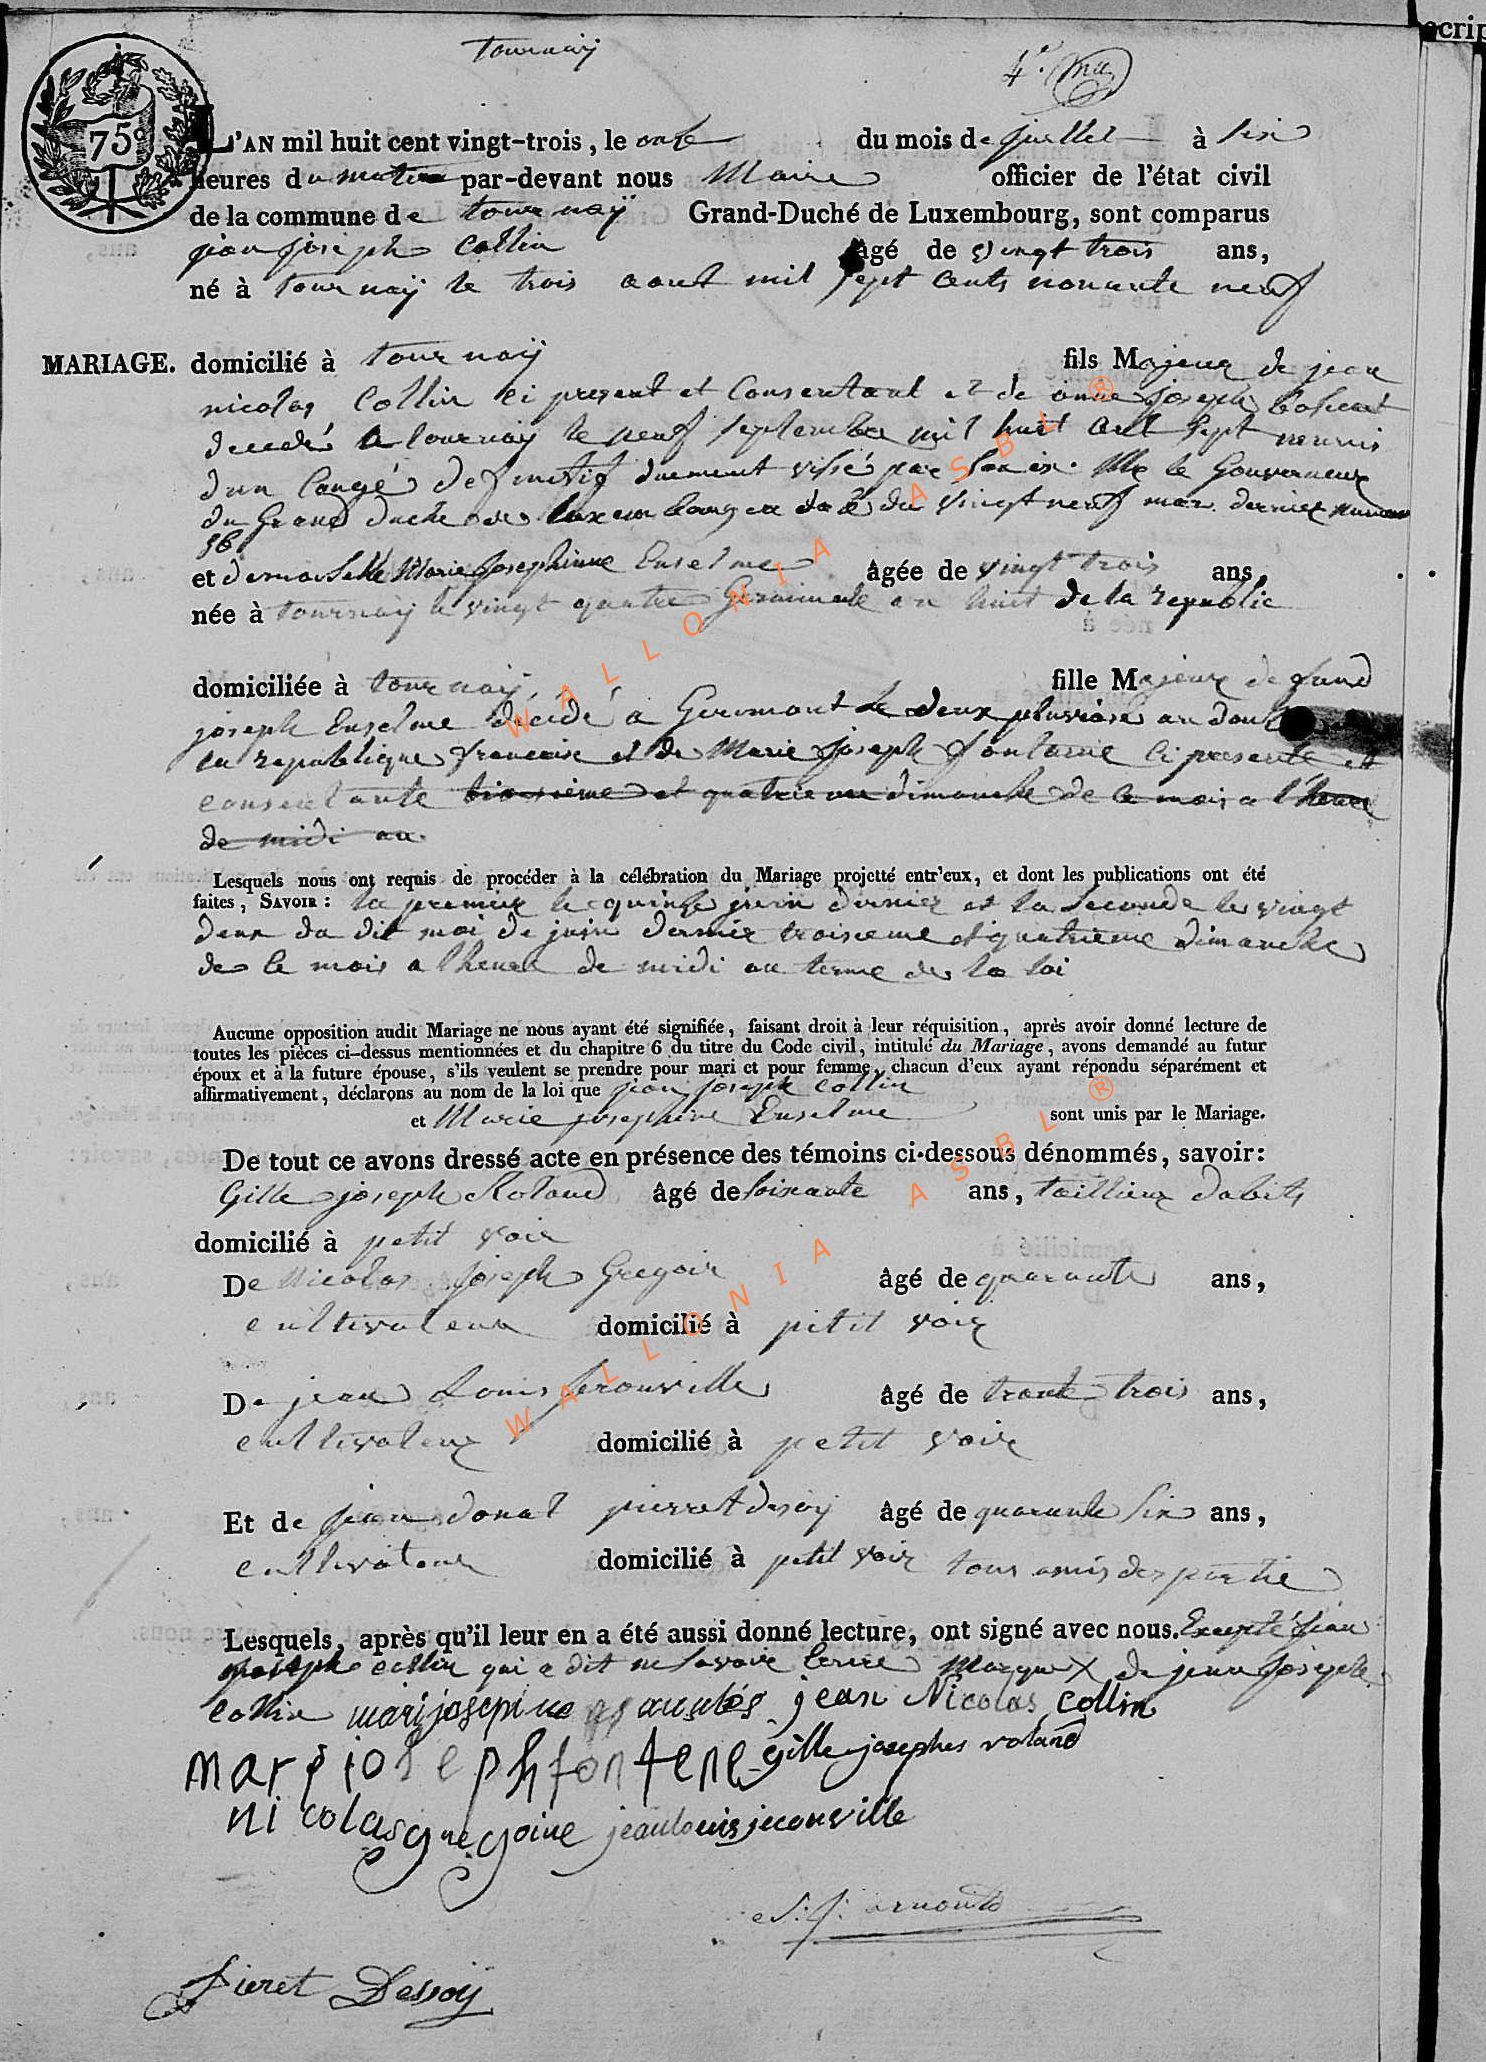 tournaÿ
4e. Ma
75c
L'AN mil huit cent vingt-trois, le onze du mois de juillet à six
heures du matin par-devant nous Maire officier de l'état civil
de la commune de tournaÿ Grand-Duché de Luxembourg, sont comparus
jean joseph Collin âgé de vingt trois ans,
né à tournaÿ le trois aout mil sept cents nonante neuf
MARIAGE. domicilié à tournaÿ fils Majeur de jean
nicolas Collin ci present et Consentant et de anne joseph
decedé a tournaÿ le neuf septembre mil huit cent sept munis
dun Congé definitif duement visé par son ex. Mr le Gouverneur
du Grand duché de luxembourg en date du vingt neuf mars dernier numero
56
et demoiselle Marie Josephinne Enselme âgée de vingt trois ans,
née à tournaÿ le vingt quatre Germinale an huit de la republic
domiciliée à tournaÿ fille Majeur de fund
joseph Enselme décédé a Gerimont le deux pluviose an douze
la republique francaise et de Marie joseph fontaine ci presente et
consentante troisieme et quatrieme dimanche de ce mois a l'heure
de midi au
Lesquels nous ont requis de procéder à la célébration du Mariage projetté entr'eux, et dont les publications ont été
faites, SAVOIR : la premier le quinze juin dernier et la seconde le vingt
deux du dit moi de juin dernier troiseme et quatrieme dimanche
de ce mois a l'heure de midi au terme de la loi
Aucune opposition audit Mariage ne nous ayant été signifiée, faisant droit à leur réquisition, après avoir donné lecture de
toutes les pièces ci-dessus mentionnées et du chapitre 6 du titre du Code civil, intitulé du Mariage, avons demandé au futur
époux et à la future épouse, s'ils veulent se prendre pour mari et pour femme, chacun d'eux ayant répondu séparément et
affirmativement, déclarons au nom de la loi que jean joseph Collin
et Marie josephine Enselme sont unis par le Mariage.
De tout ce avons dressé acte en présence des témoins ci-dessous dénommés, savoir:
Gille joseph Roland âgé de soixante ans, taillieur dabits
domicilié à petit voir
De Nicolas joseph Gregoir âgé de quarante ans,
cultivateur domicilié à petit voir
De jean Louis jerouville âgé de trante trois ans,
cultivateur domicilié à petit voir
Et de jean donat pierret desoÿ âgé de quarante six ans,
cultivateur domicilié à petit voir tous amis des partie
Lesquels, après qu'il leur en a été aussi donné lecture, ont signé avec nous. Excepté jean
joseph collin qui a dit ne savoir Ecrire marque X de jean joseph
Collin marijosepine jean Nicolas collin
mari joseph fontene gille josephes roland
nicolas gregoire jeanlouis jerouville
arnould
Pieret Dessoÿ
WALLONIA ASBL ®
WALLONIA ASBL ®